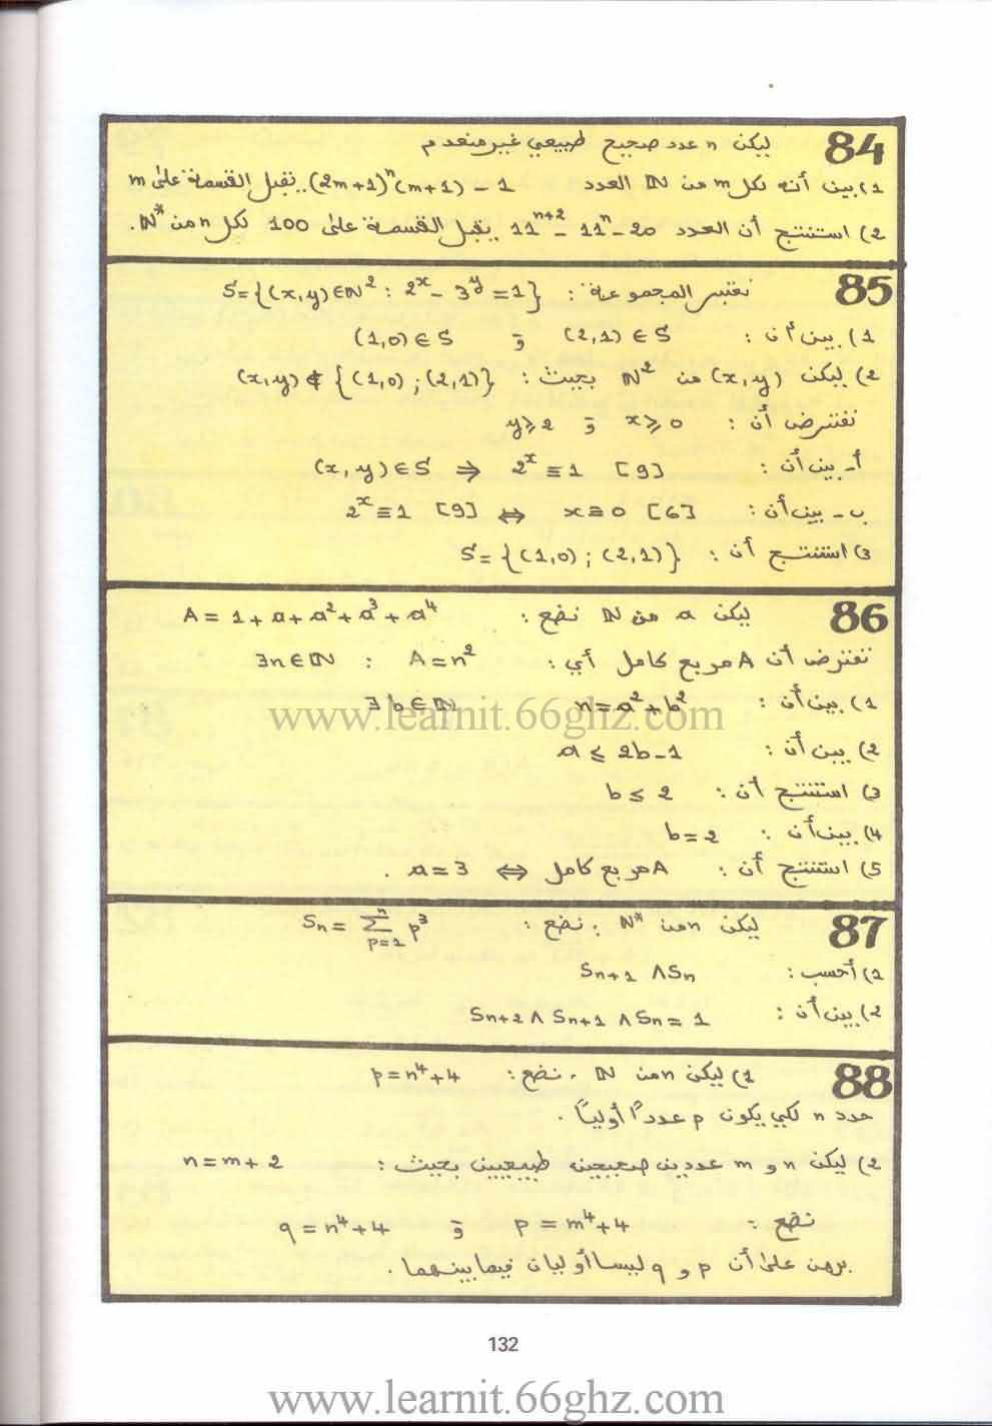 84 ليكن n عدد صحيح طبيعي غير منعدم
1) بين أنه لكل m من ℕ العدد (2m+1)ⁿ(m+1) - 1 تقبل القسمة على m
2) استنتج أن العدد 11ⁿ⁺² - 11ⁿ - 20 يقبل القسمة على 100 لكل n من ℕ*.
85 نعتبر المجموعة : S={(x,y)∈ℕ² : 2ˣ - 3ʸ = 1}
1) بين أن : (2,1) ∈ S و (1,0) ∈ S
2) ليكن (x,y) من ℕ² بحيث : (x,y) ∉ {(1,0) ; (2,1)}
نفترض أن : x ⩾ 0 و y ⩾ 2
أ- بين أن : (x,y) ∈ S ⇒ 2ˣ ≡ 1 [9]
ب- بين أن : 2ˣ ≡ 1 [9] ⇔ x ≡ 0 [6]
3) استنتج أن : S = {(1,0) ; (2,1)}
86 ليكن a من ℕ نضع : A = 1 + a + a² + a³ + a⁴
نفترض أن A مربع كامل أي : ∃n∈ℕ : A = n²
1) بين أن : n = a² + b² ∃b∈ℕ
www.learnit.66ghz.com
2) بين أن : a ≤ 2b-1
3) استنتج أن : b ≤ 2
4) بين أن : b = 2
5) استنتج أن : A مربع كامل ⇔ a = 3 .
87 ليكن n من ℕ* . نضع : Sₙ = Σⁿₚ₌₁ p³
1) أحسب : Sₙ₊₁ ∧ Sₙ
2) بين أن : Sₙ₊₂ ∧ Sₙ₊₁ ∧ Sₙ = 1
88 1) ليكن n من ℕ . نضع : p = n⁴+4
حدد n لكي يكون p عددًا أوليًا .
2) ليكن n و m عددين صحيحين طبيعيين بحيث : n = m + 2
نضع : p = m⁴+4 و q = n⁴+4
برهن على أن p و q ليسا أوليان فيما بينهما .
132
www.learnit.66ghz.com